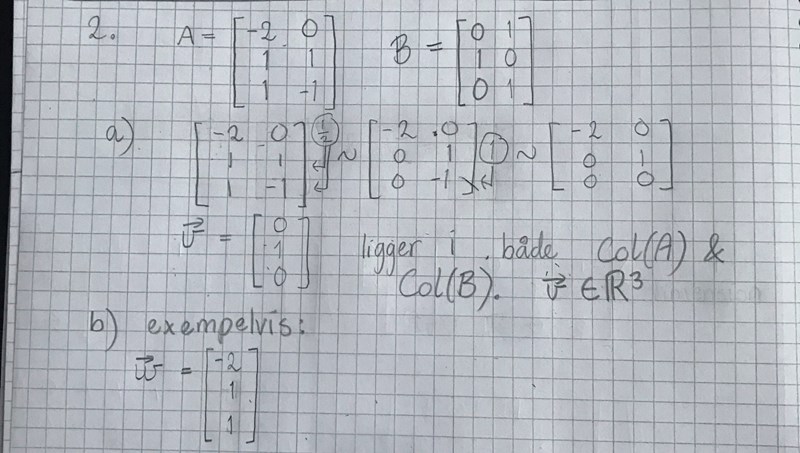 2. A = [-2 0; 1 1; 1 -1] B = [0 1; 1 0; 0 1]
a) [-2 0; 1 1; 1 -1] (1/2) ~ [-2 0; 0 1; 0 -1] (1) ~ [-2 0; 0 1; 0 0]
v⃗ = [0; 1; 0] ligger i både Col(A) &
Col(B). v⃗ ∈ ℝ³
b) exempelvis:
w⃗ = [-2; 1; 1]